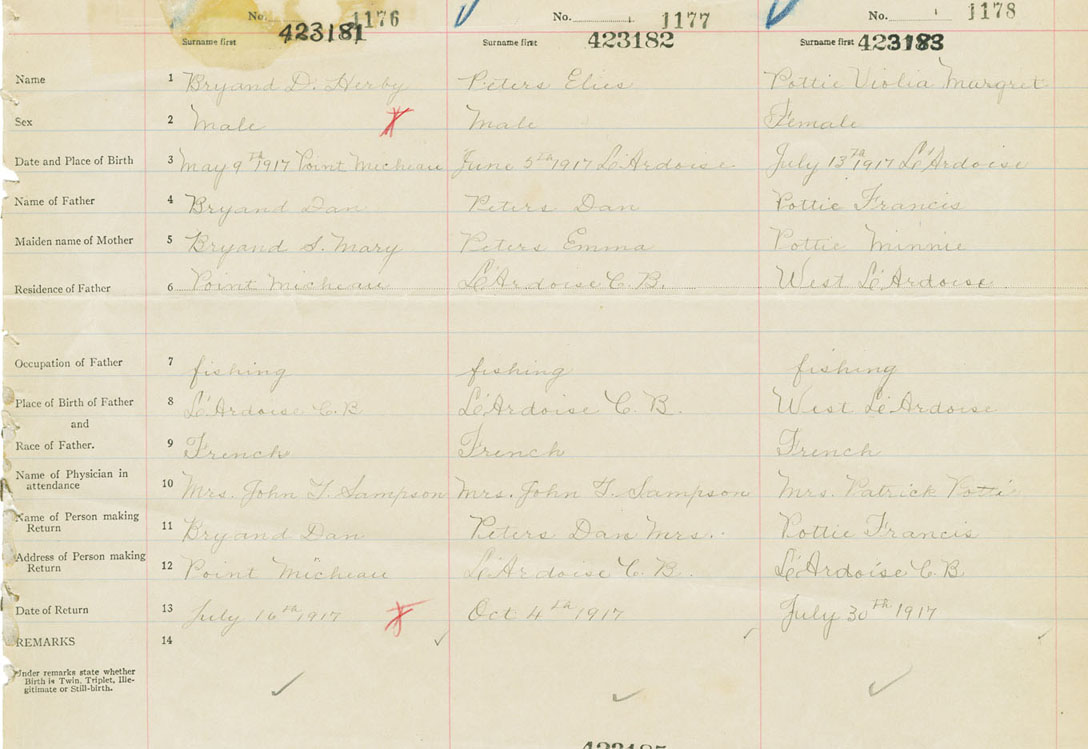 No. 1176 No. 1177 No. 1178
Surname first 423181 Surname first 423182 Surname first 423183
Name 1 Bryand D. Herby Peters Elies Pottie Violia Margret
Sex 2 Male Male Female
Date and Place of Birth 3 May 9th 1917 Point Micheau June 5th 1917 L'Ardoise. July 13th 1917 L'Ardoise
Name of Father 4 Bryand Dan Peters Dan Pottie Francis
Maiden name of Mother 5 Bryand S. Mary Peters Emma Pottie Minnie
Residence of Father 6 Point Micheau L'Ardoise C.B. West L'Ardoise
Occupation of Father 7 fishing fishing fishing
Place of Birth of Father 8 L'Ardoise C.B L'Ardoise C.B. West L'Ardoise
and
Race of Father. 9 French French French
Name of Physician in attendance 10 Mrs. John T. Sampson Mrs. John T. Sampson Mrs. Patrick Pottie
Name of Person making Return 11 Bryand Dan Peters Dan Mrs. Pottie Francis
Address of Person making Return 12 Point Micheau L'Ardoise C.B. L'Ardoise C B
Date of Return 13 July 16th 1917 Oct 4th 1917 July 30th 1917
REMARKS 14
Under remarks state whether
Birth is Twin, Triplet, Ille-
gitimate or Still-birth.